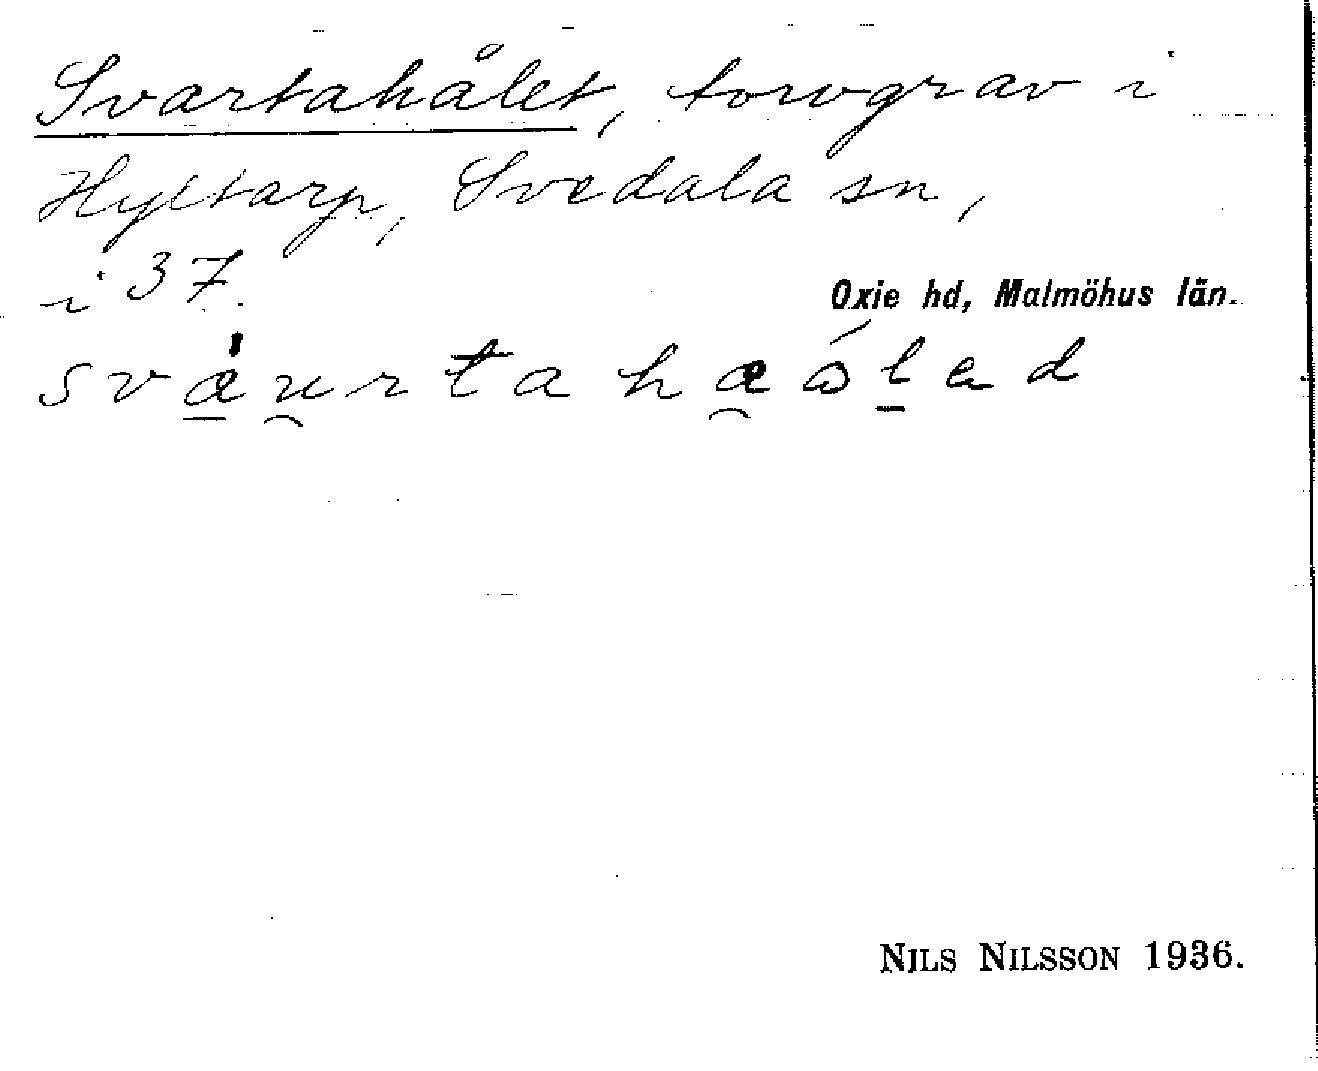 Svartahålet, torvgrav i
Hyltarp, Svedala sn,
i 37.
Oxie hd, Malmöhus län.
NILS NILSSON 1936.